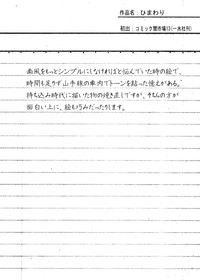 作品名：ひまわり
初出：コミック闇市場13（一水社刊）
画風をもっとシンプルにしなければと悩んでいた時の絵で、
時間も足りず山手線の車内でトーンを貼った憶えがある。
持ち込み時代に描いた物の焼き直しですが、そちらの方が
面白い上に、絵も巧みだったりします。